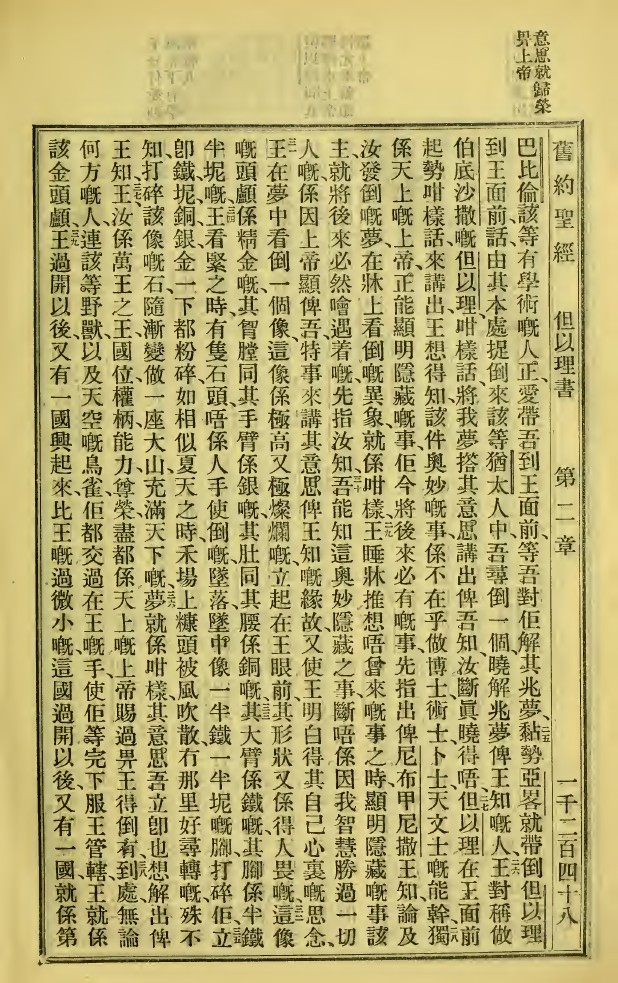 意思就歸榮
畀上帝
舊約聖經 但以理書 第二章 一千二百四十八
巴比倫該等有學術嘅人正愛帶吾到王面前、等吾對佢解其兆夢、二五黏勢亞畧就帶倒但以理
到王面前話、由其本處捉倒來該等猶太人中、吾尋倒一個曉解兆夢俾王知嘅人、二六王對稱做
伯底沙撒嘅但以理咁樣話、將我夢搭其意思講出俾吾知、汝斷眞曉得唔、二七但以理在王面前
起勢咁樣話來講出、王想得知該件奧妙嘅事、係不在乎做博士術士卜士天文士嘅能幹、二八獨
係天上嘅上帝、正能顯明隱藏嘅事、佢今將後來必有嘅事、先指出俾尼布甲尼撒王知、論及
汝發倒嘅夢、在牀上看倒嘅異象、就係咁樣、二九王睡牀推想唔曾來嘅事之時、顯明隱藏嘅事該
主、就將後來必然噲遇着嘅先指汝知、三十吾能知這奧妙隱藏之事、斷唔係因我智慧勝過一切
人嘅、係因上帝顯俾吾特事來講其意思俾王知嘅緣故、又使王明白得其自己心裏嘅思念、
三一王在夢中看倒一個像、這像係極高又極燦爛嘅、立起在王眼前、其形狀又係得人畏嘅、三二這像
嘅頭顱係精金嘅、其胷膛同其手臂係銀嘅、其肚同其腰係銅嘅、三三其大臂係鐵嘅、其腳係半鐵
半坭嘅、三四王看緊之時、有隻石頭唔係人手使倒嘅、墜落墜中像一半鐵一半坭嘅腳、打碎佢、三五立
卽鐵坭銅銀金、一下都粉碎、如相似夏天之時、禾場上糠頭被風吹散、冇那里好尋轉嘅、殊不
知打碎該像嘅石、隨漸變做一座大山、充滿天下嘅、三六夢就係咁樣、其意思吾立卽也想解出俾
王知、三七王汝係萬王之王、國位權柄能力尊榮、盡都係天上嘅上帝賜過畀王得倒有、三八到處無論
何方嘅人、連該等野獸、以及天空嘅鳥雀、佢都交過在王嘅手、使佢等完下服王管轄、王就係
該金頭顱、三九王過開以後、又有一國興起來、比王嘅過微小嘅、這國過開以後、又有一國、就係第